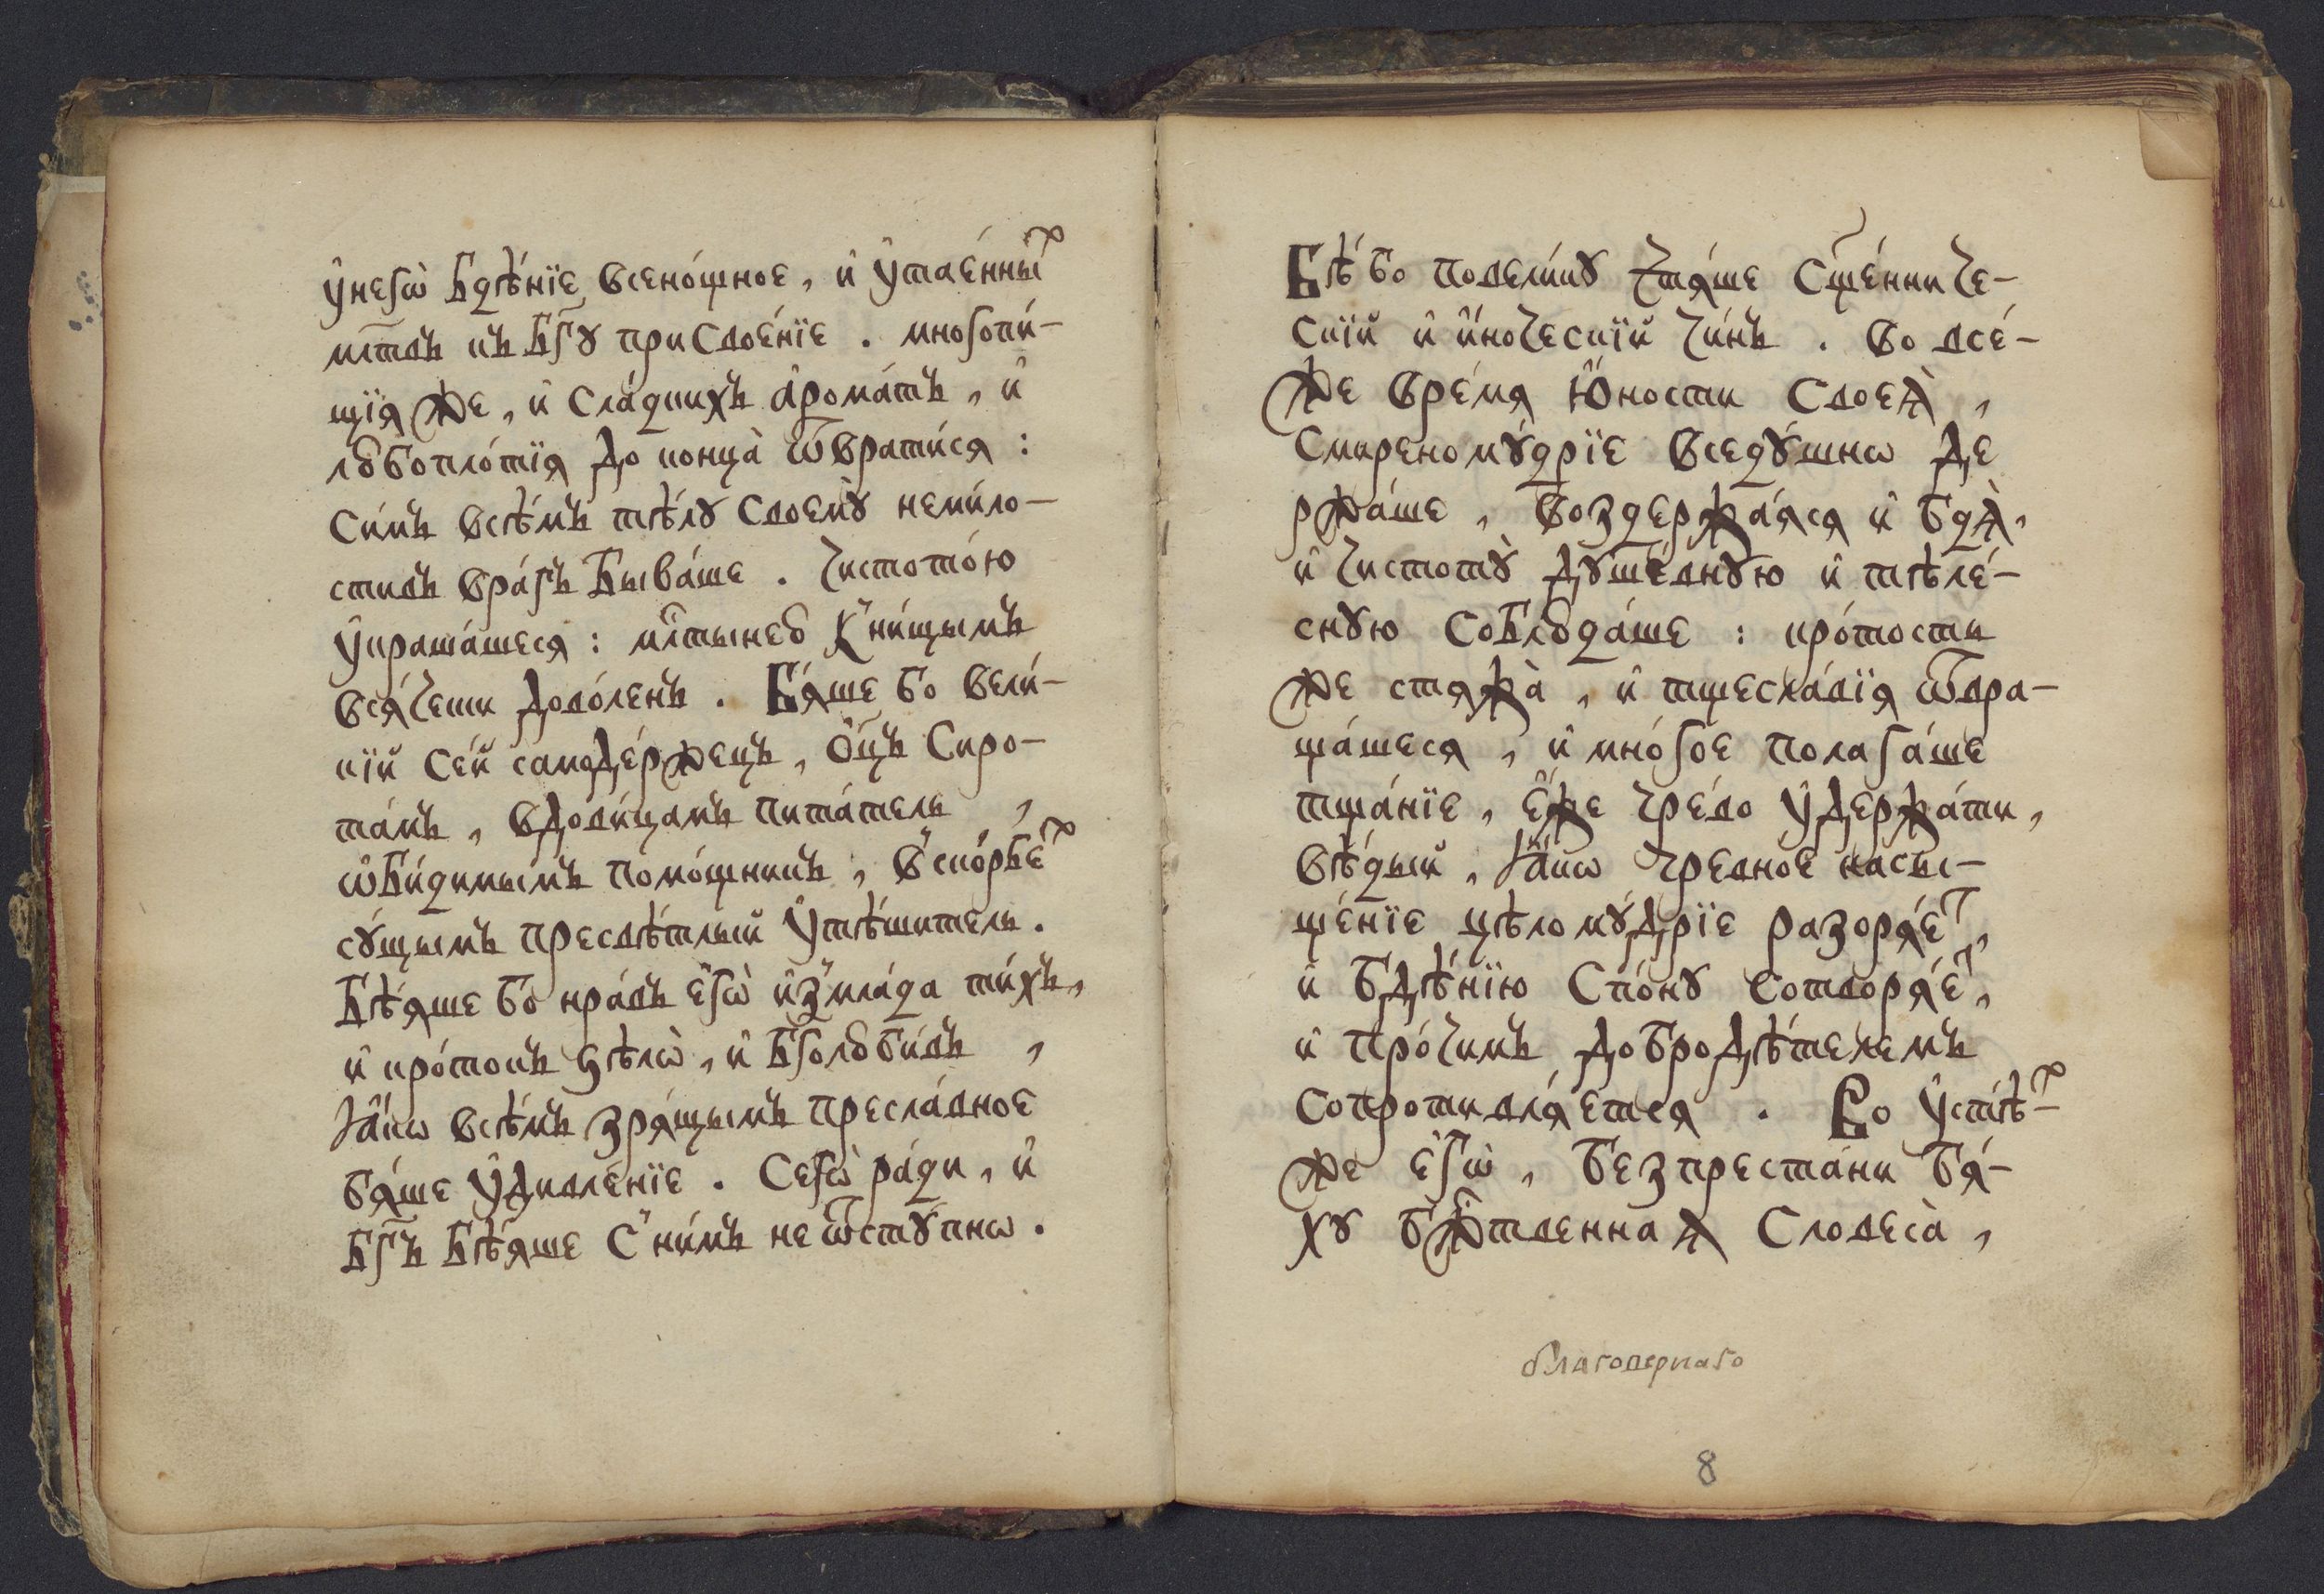 ᲂу҆негѡ̀ бдѣ́нїе всено́щное, и҆ ᲂу҆тае́нныⷯ
мл҃твъ къ бг҃ꙋ присвое́нїе. многопи́-
щїѧ же, и҆ сла́дкихъ а҆рома́тъ, и҆
любопло́тїѧ до конца̀ ѿврати́сѧ:
си́мъ всѣ́мъ тѣ́лꙋ своемꙋ̀ неми́ло-
стивъ вра́гъ быва́ше. чистото́ю
ᲂу҆краша́шесѧ: мл҃тынею к ни́щымъ
всѧ́чески дово́ленъ. Бѧ́ше бо вели́-
кїй се́й самоде́ржецъ, ѻ҆ц҃ъ сиро-
та́мъ, вдови́цамъ пита́тель,
ѡ҆би́димымъ помо́щникъ, в ско́рбеⷯ
сꙋ́щымъ пресвѣ́тлый ᲂу҆тѣ́шитель.
Бѣ́ѧше бо нра́въ є҆гѡ̀ и҆з мла́да ти́хъ,
и҆ кро́токъ ѕѣлѡ̀, и҆ бг҃олюби́въ,
ꙗ҆́кѡ всѣ́мъ зрѧ́щымъ пресла́вное
бѧ́ше ᲂу҆дивле́нїе. Сегѡ̀ ра́ди, и҆
бг҃ъ бѣ́ѧше с ни́мъ неѿстꙋ́пнѡ.
Бѣ́ бо повели́кꙋ чтѧ́ше сщ҃е́нниче-
скїй и҆ и҆́ноческїй чи́нъ. Во всé-
же вре́мѧ ю҆́ности своеѧ̀,
смиреномꙋ́дрїе вседꙋ́шнѡ де
ржа́ше, воздержа́ѧсѧ и҆ бдѧ̀,
и҆ чистотꙋ̀ дꙋше́внꙋю и҆ тѣле́-
снꙋю соблюда́ше: кро́тости
же стѧжа̀, и҆ тщесла́вїѧ ѿвра-
ща́шесѧ, и҆ мно́гое полага́ше
тща́нїе, є҆́же чре́во ᲂу҆держа́ти,
вѣ́дый, ꙗ҆́кѡ чревное насы-
ще́нїе цѣломꙋ́дрїе разорѧ́еⷮ,
и҆ бдѣ́нїю спо́нꙋ сотворѧ́еⷮ,
и҆ про́чимъ добродѣ́телемъ
сопротивлѧ́етсѧ. Во ᲂу҆стѣ́ⷯ-
же є҆гѡ̀, безпреста́ни бѧ́-
хꙋ бж҃твеннаѧ словеса̀,
благовернаго
8